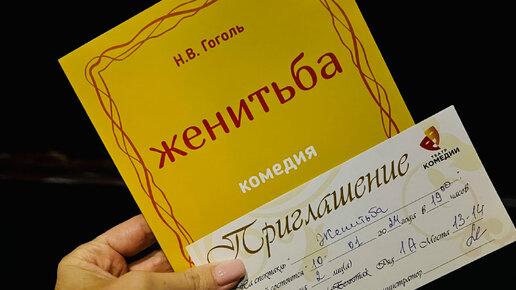 Н.В. Гоголь
женитьба
комедия
ТЕАТР
КОМЕДИИ
Приглашение
На спектакль Женитьба
состоится 10 01 2024 года в 19 00 часов
2 лиц(а) Ряд 1А Места 13-14
администратор